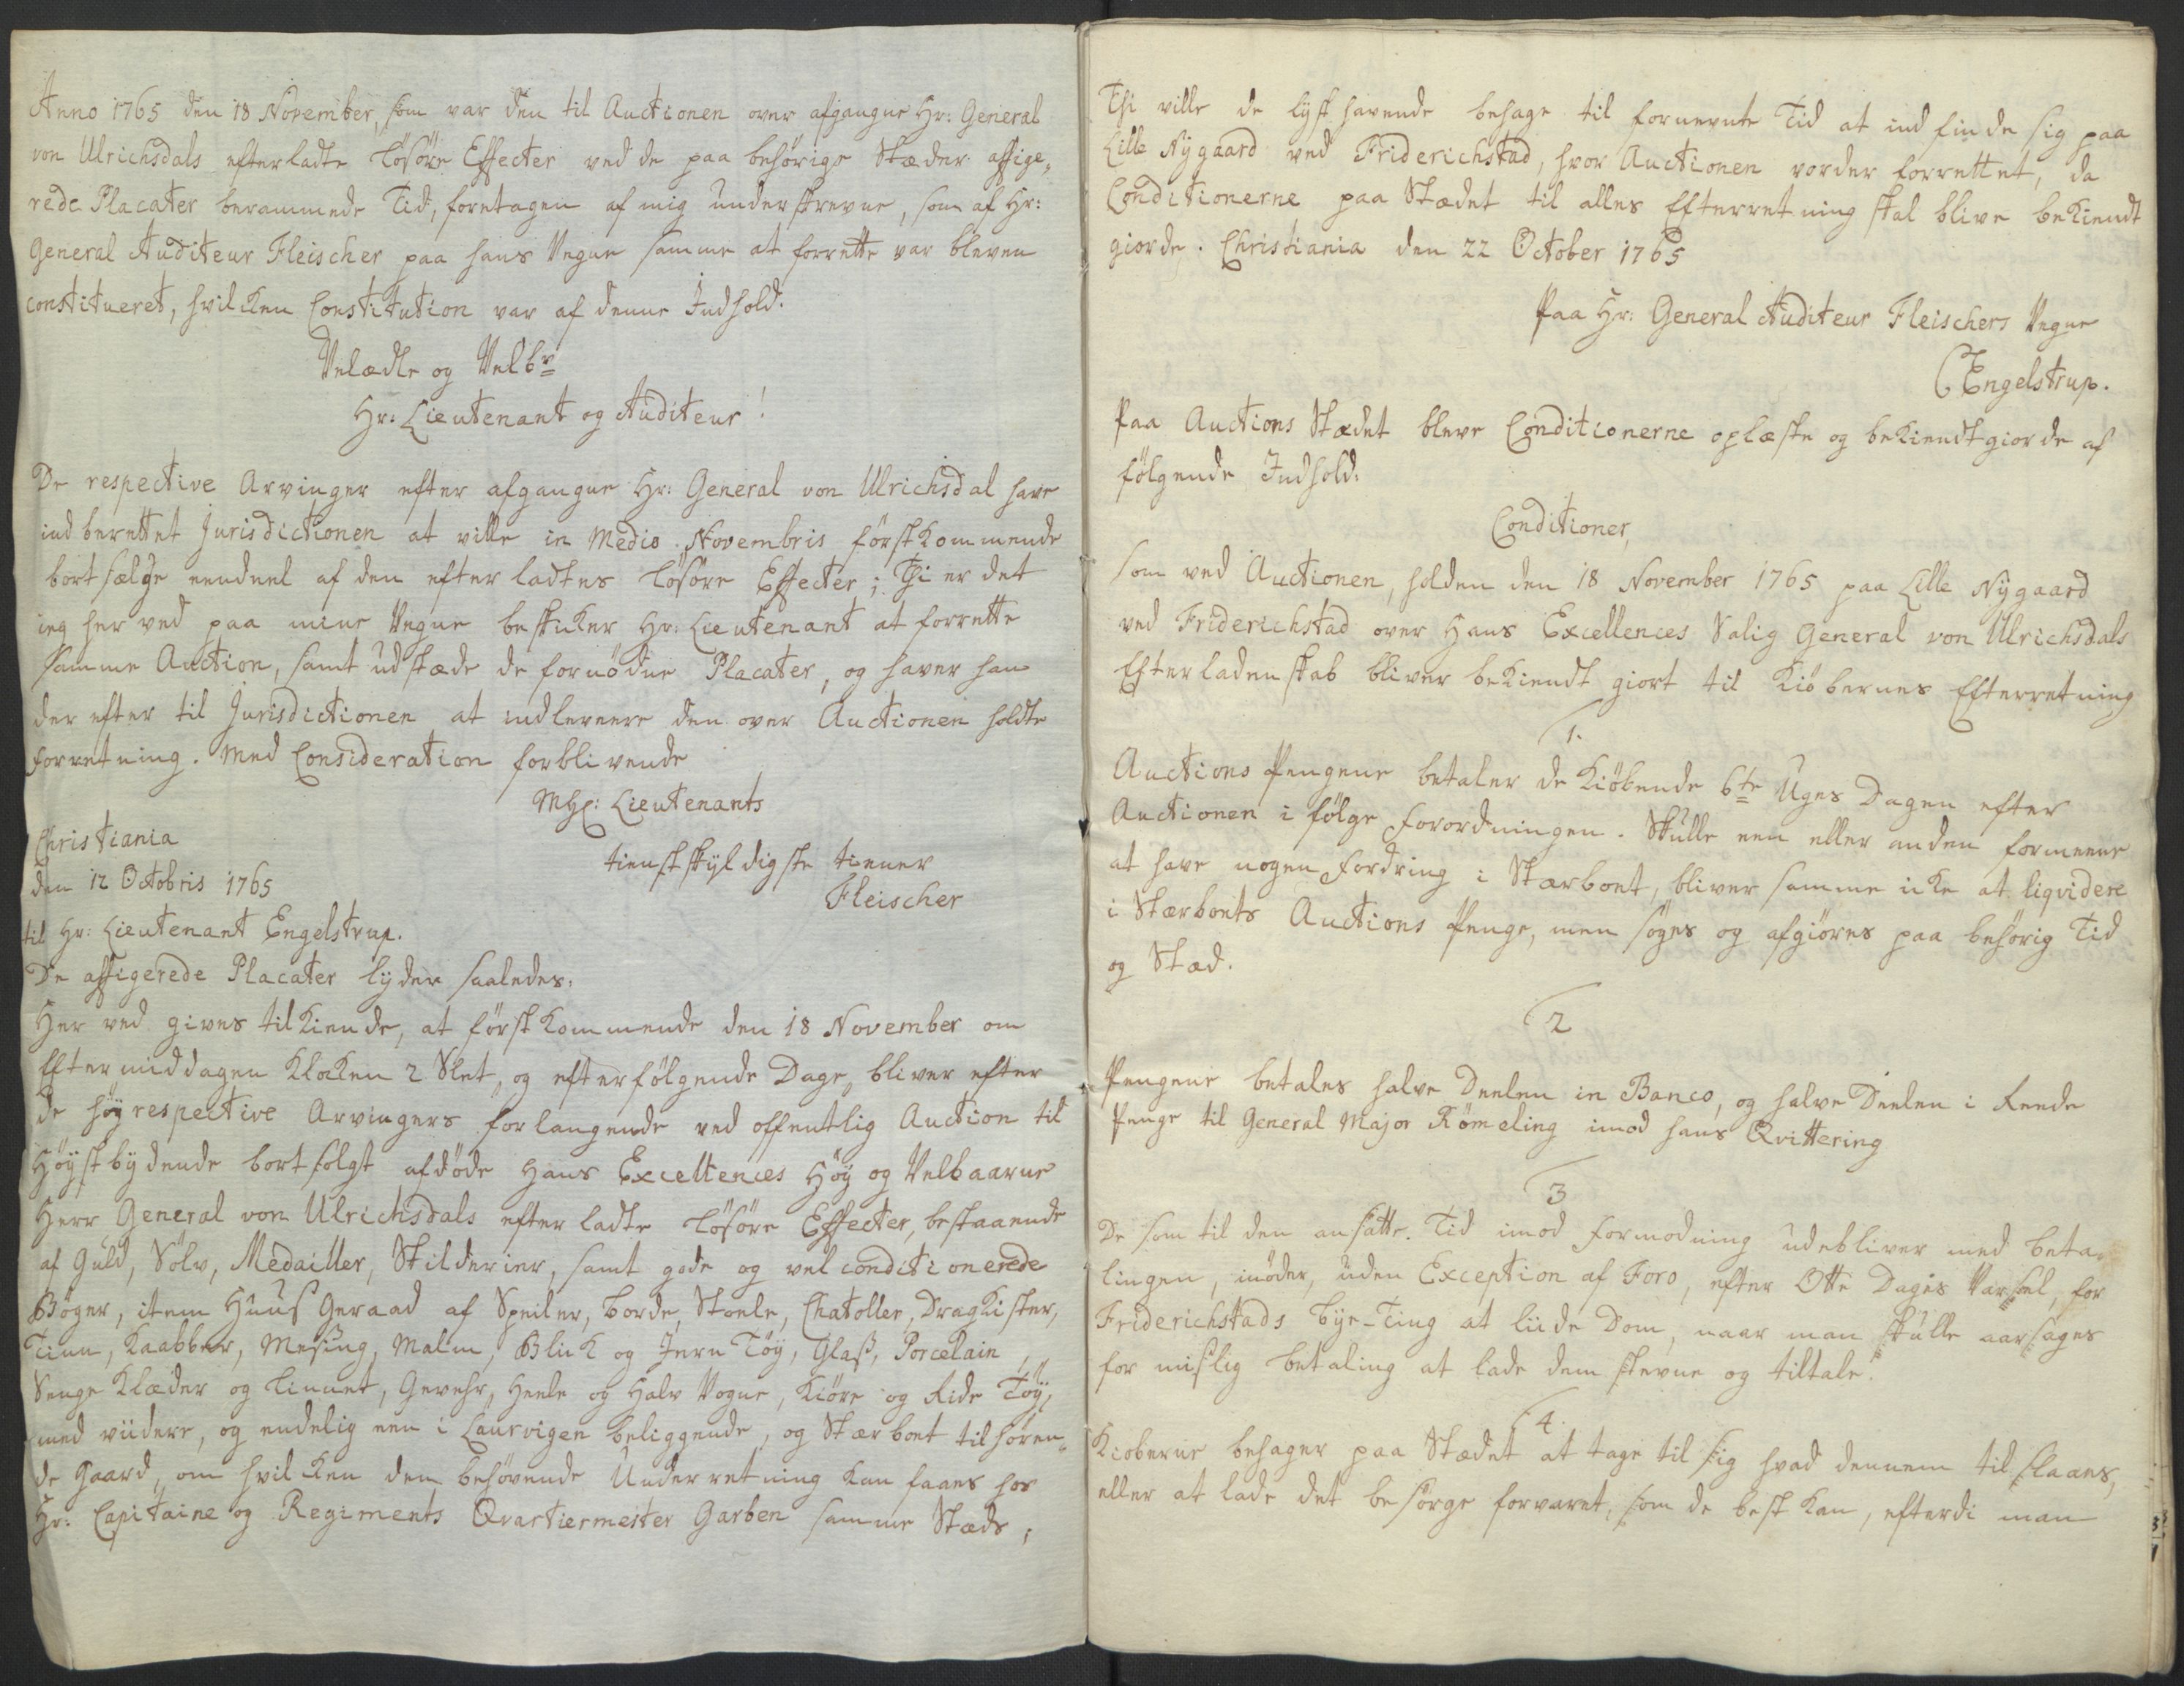 Anno 1765 den 18 November, som var den til Auctionen over afgangne Hr: General
von Ulrichsdals efterladte Løsøre Effecter ved de paa behørige Stæder affige-
rede Placater berammede Tid, foretagen af mig underskrevne, som af Hr:
General Auditeur Fleischer paa hans Vegne samme at forrette var bleven
constitueret, hvilcken Constitution var af denne Indhold.
Velædle og Velbr
Hr: Lieutenant og Auditeur!
De respective Arvinger efter afgangne Hr: General von Ulrichsdal have
indberettet Jurisdictionen at ville in Medio Novembris førstkommende
bortsælge eendeel af den efterladtes Løsøre Effecter; Thi er det
ieg herved paa mine Vegne beskicker Hr: Lieutenant at forrette
samme Auction, samt udstæde de fornødne Placater, og haver han
derefter til Jurisdictionen at indlevere den over Auctionen holdte
Forretning. Med Consideration forblivende
MhH: Lieutenants
Christiania
tienstskyldigste tienner
den 12 Octobris 1765
Fleischer
til Hr: Lieutenant Engelstrup.
De affigerede Placater lyder saaledes:
Herved gives tilkiende, at førstkommende den 18 November om
Eftermiddagen Klocken 2 Slet, og efterfølgende Dage, bliver efter
de høyrespective Arvingers forlangende ved offentlig Auction til
Høystbydende bortsolgt afdøde Hans Excellences Høy og Velbaarne
Herr General von Ulrichsdals efterladte Løsøre Effecter, bestaaende
af Guld, Sølv, Medailler, Skilderier, samt gode og vel conditionerede
Bøger, item Huus Geraad af Speiler, Borde, Stoele, Chatoller, Dragkister,
Tinn, Kaabber, Mesing, Malm, Blick og Jern Tøy, Glaß, Porcelain,
Senge Klæder og Linnet, Gevehr, Heele og Halv Vogne, Kiøre og Ride Tøy,
med viidere, og endelig een i Laurvigen beliggende, og Stærboet tilhøren-
de Gaard, om hvilcken den behøvende Underretning kan faaes hos
Hr: Capitaine og Regiments Qvartiermester Garben samme Stæds;
Thi ville de lysthavende behage til fornevnte Tid at indfinde sig paa
Lille Nygaard ved Friderichstad, hvor Auctionen vorder forrettet, da
Conditionerne paa Stædet til alles Efterretning skal blive bekiendt
giorde. Christiania den 22 October 1765
Paa Hr: General Auditeur Fleischers Vegne
C Engelstrup.
Paa Auctions Stædet bleve Conditionerne oplæste og bekiendtgiorde af
følgende Indhold:
Conditioner,
som ved Auctionen, holden den 18 November 1765 paa Lille Nygaard
ved Friderichstad over Hans Excellences Salig General von Ulrichsdals
Efterladenskab bliver bekiendt giort til Kiøbernes Efterretning
1.
Auctions Pengene betaler de Kiøbende 6te Uges Dagen efter
Auctionen i følge Forordningen. Skulle een eller anden formeene
at have nogen Fordring i Stærboet, bliver samme icke at liqvidere
i Stærboets Auctions Penge, men søges og afgiøres paa behørig Tid
og Stæd.
2
Pengene betales halve Deelen in Banco, og halve Deelen i Reede
Penge til General Major Rømeling imod hans Qvittering
3
De som til den ansatte Tid imod Formodning udebliver med beta-
lingen, møder, uden Exception af Foro, efter Otte Dages Varsel, for
Friderichstads Bye-Ting at liide Dom, naar man skulle aarsages
for mislig betaling at lade dem stevne og tiltale.
4.
Kioberne behager paa Stædet at tage til sig hvad dennem tilslaaes,
eller at lade det besørge forvaret, som de best kan, efterdi man